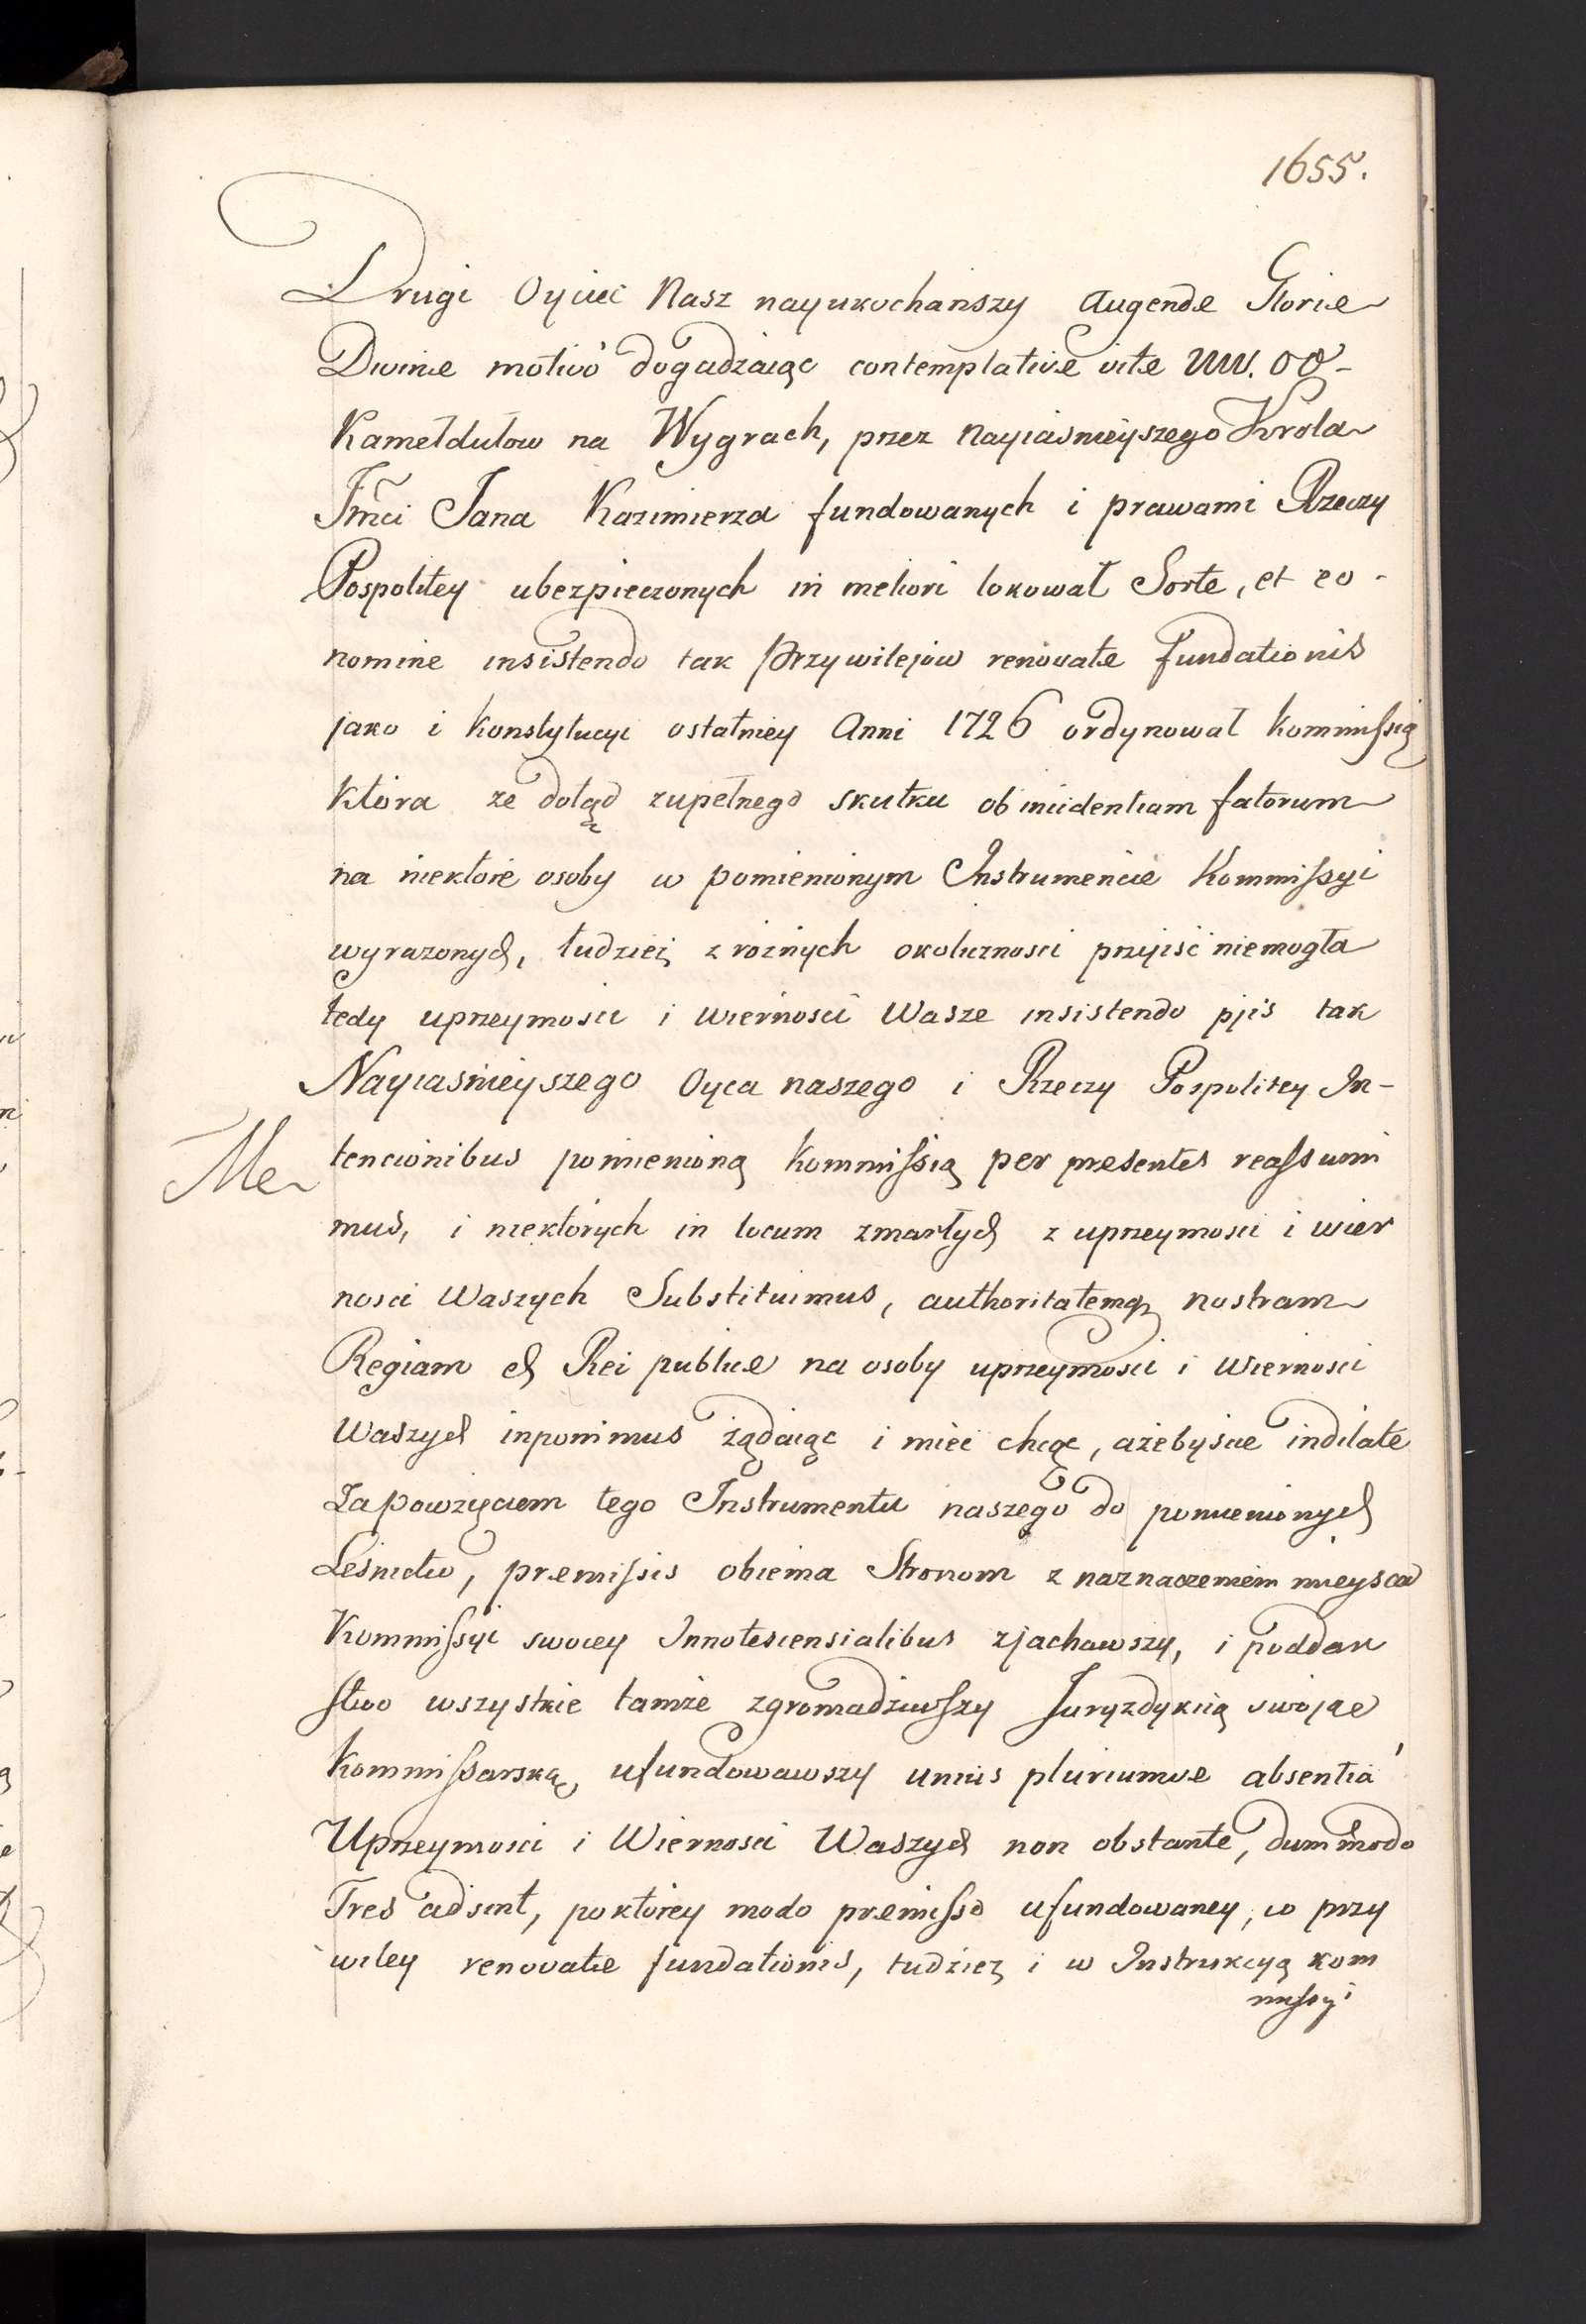 1655.
Drugi Oyciec Nasz nayukochanszy augendæ Gloriæ
Divinæ motivo dogadzaiąc contemplativæ vitæ WW. OO-
Kamedułow na Wygrach, przez Nayiaśnieyszego Krola
Jmći Jana Kazimierza fundowanych i prawami Rzeczy
Pospolitey ubezpieczonych in meliori lokował Sorte, et eo-
nomine insistendo tak Przywilejow renovatæ fundationis
jako i Konstytucyi ostatniey Anni 1726 ordynował kommissią
Ktora że dotąd zupełnego skutku ob incidentiam fatorum
na niektore osoby w pomienionym Instrumencie Kommissyi
wyrazonych, tudzież z rożnych okoliczności przyiść niemogła
tedy uprzeymości i wierności Wasze insistendo pjis tak
Nayiaśnieyszego Oyca naszego i Rzeczy Pospolitey In-
tencionibus pomienioną kommissią per præsentes reassumi
Me
mus, i niektórych in locum zmarłych z uprzeymości i wier
nosci Waszych Substituimus, authoritatemq nostram
Regiam et Rei publicæ na osoby uprzeymości i Wierności
Waszych inponimus żądaiąc i mieć chcąc, ażebyscie indilate
Za powzięciem tego Instrumentu naszego do pomienionych
Leśnictw, præmissis obiema Stronom z naznaczeniem mieysca
Kommissyi swoiey Innotescensialibus zjachawszy, i poddan
stwo wszystkie tamże zgromadziwszy Juryzdykcią swoją
Kommissarską, ufundowawszy unius pluriumve absentiá
Uprzeymości i Wierności Waszych non obstante, dummodo
Tres adsint, po ktorey modo præmisso ufundowaney, w przy
wiley renovatæ fundationis, tudzież i w Instrukcyą kom
missyi